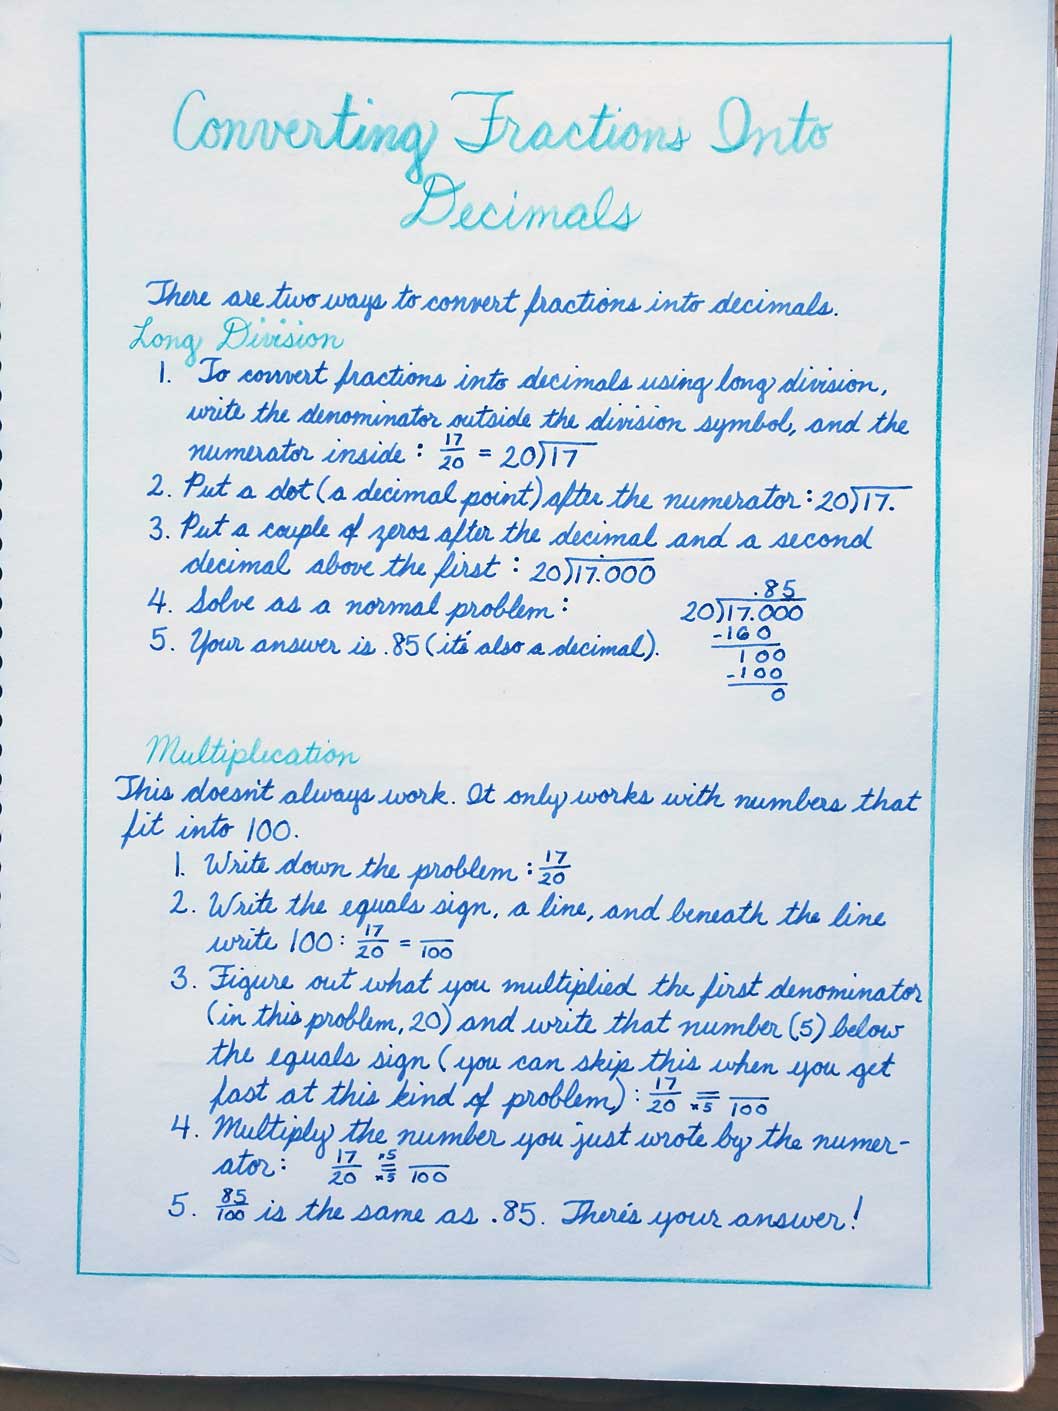 Converting Fractions Into
Decimals
There are two ways to convert fractions into decimals.
Long Division
1. To convert fractions into decimals using long division,
write the denominator outside the division symbol, and the
numerator inside : 17/20 = 20)17
2. Put a dot (a decimal point) after the numerator: 20)17.
3. Put a couple of zeros after the decimal and a second
decimal above the first : 20)17.000
4. Solve as a normal problem :
.85
20)17.000
-160
100
-100
0
5. Your answer is .85 (it's also a decimal).
Multiplication
This doesn't always work. It only works with numbers that
fit into 100.
1. Write down the problem : 17/20
2. Write the equals sign, a line, and beneath the line
write 100 : 17/20 = /100
3. Figure out what you multiplied the first denominator
(in this problem, 20) and write that number (5) below
the equals sign (you can skip this when you get
fast at this kind of problem) : 17/20 = x5 /100
4. Multiply the number you just wrote by the numer-
ator : 17/20 x5 = x5 /100
5. 85/100 is the same as .85. There's your answer!